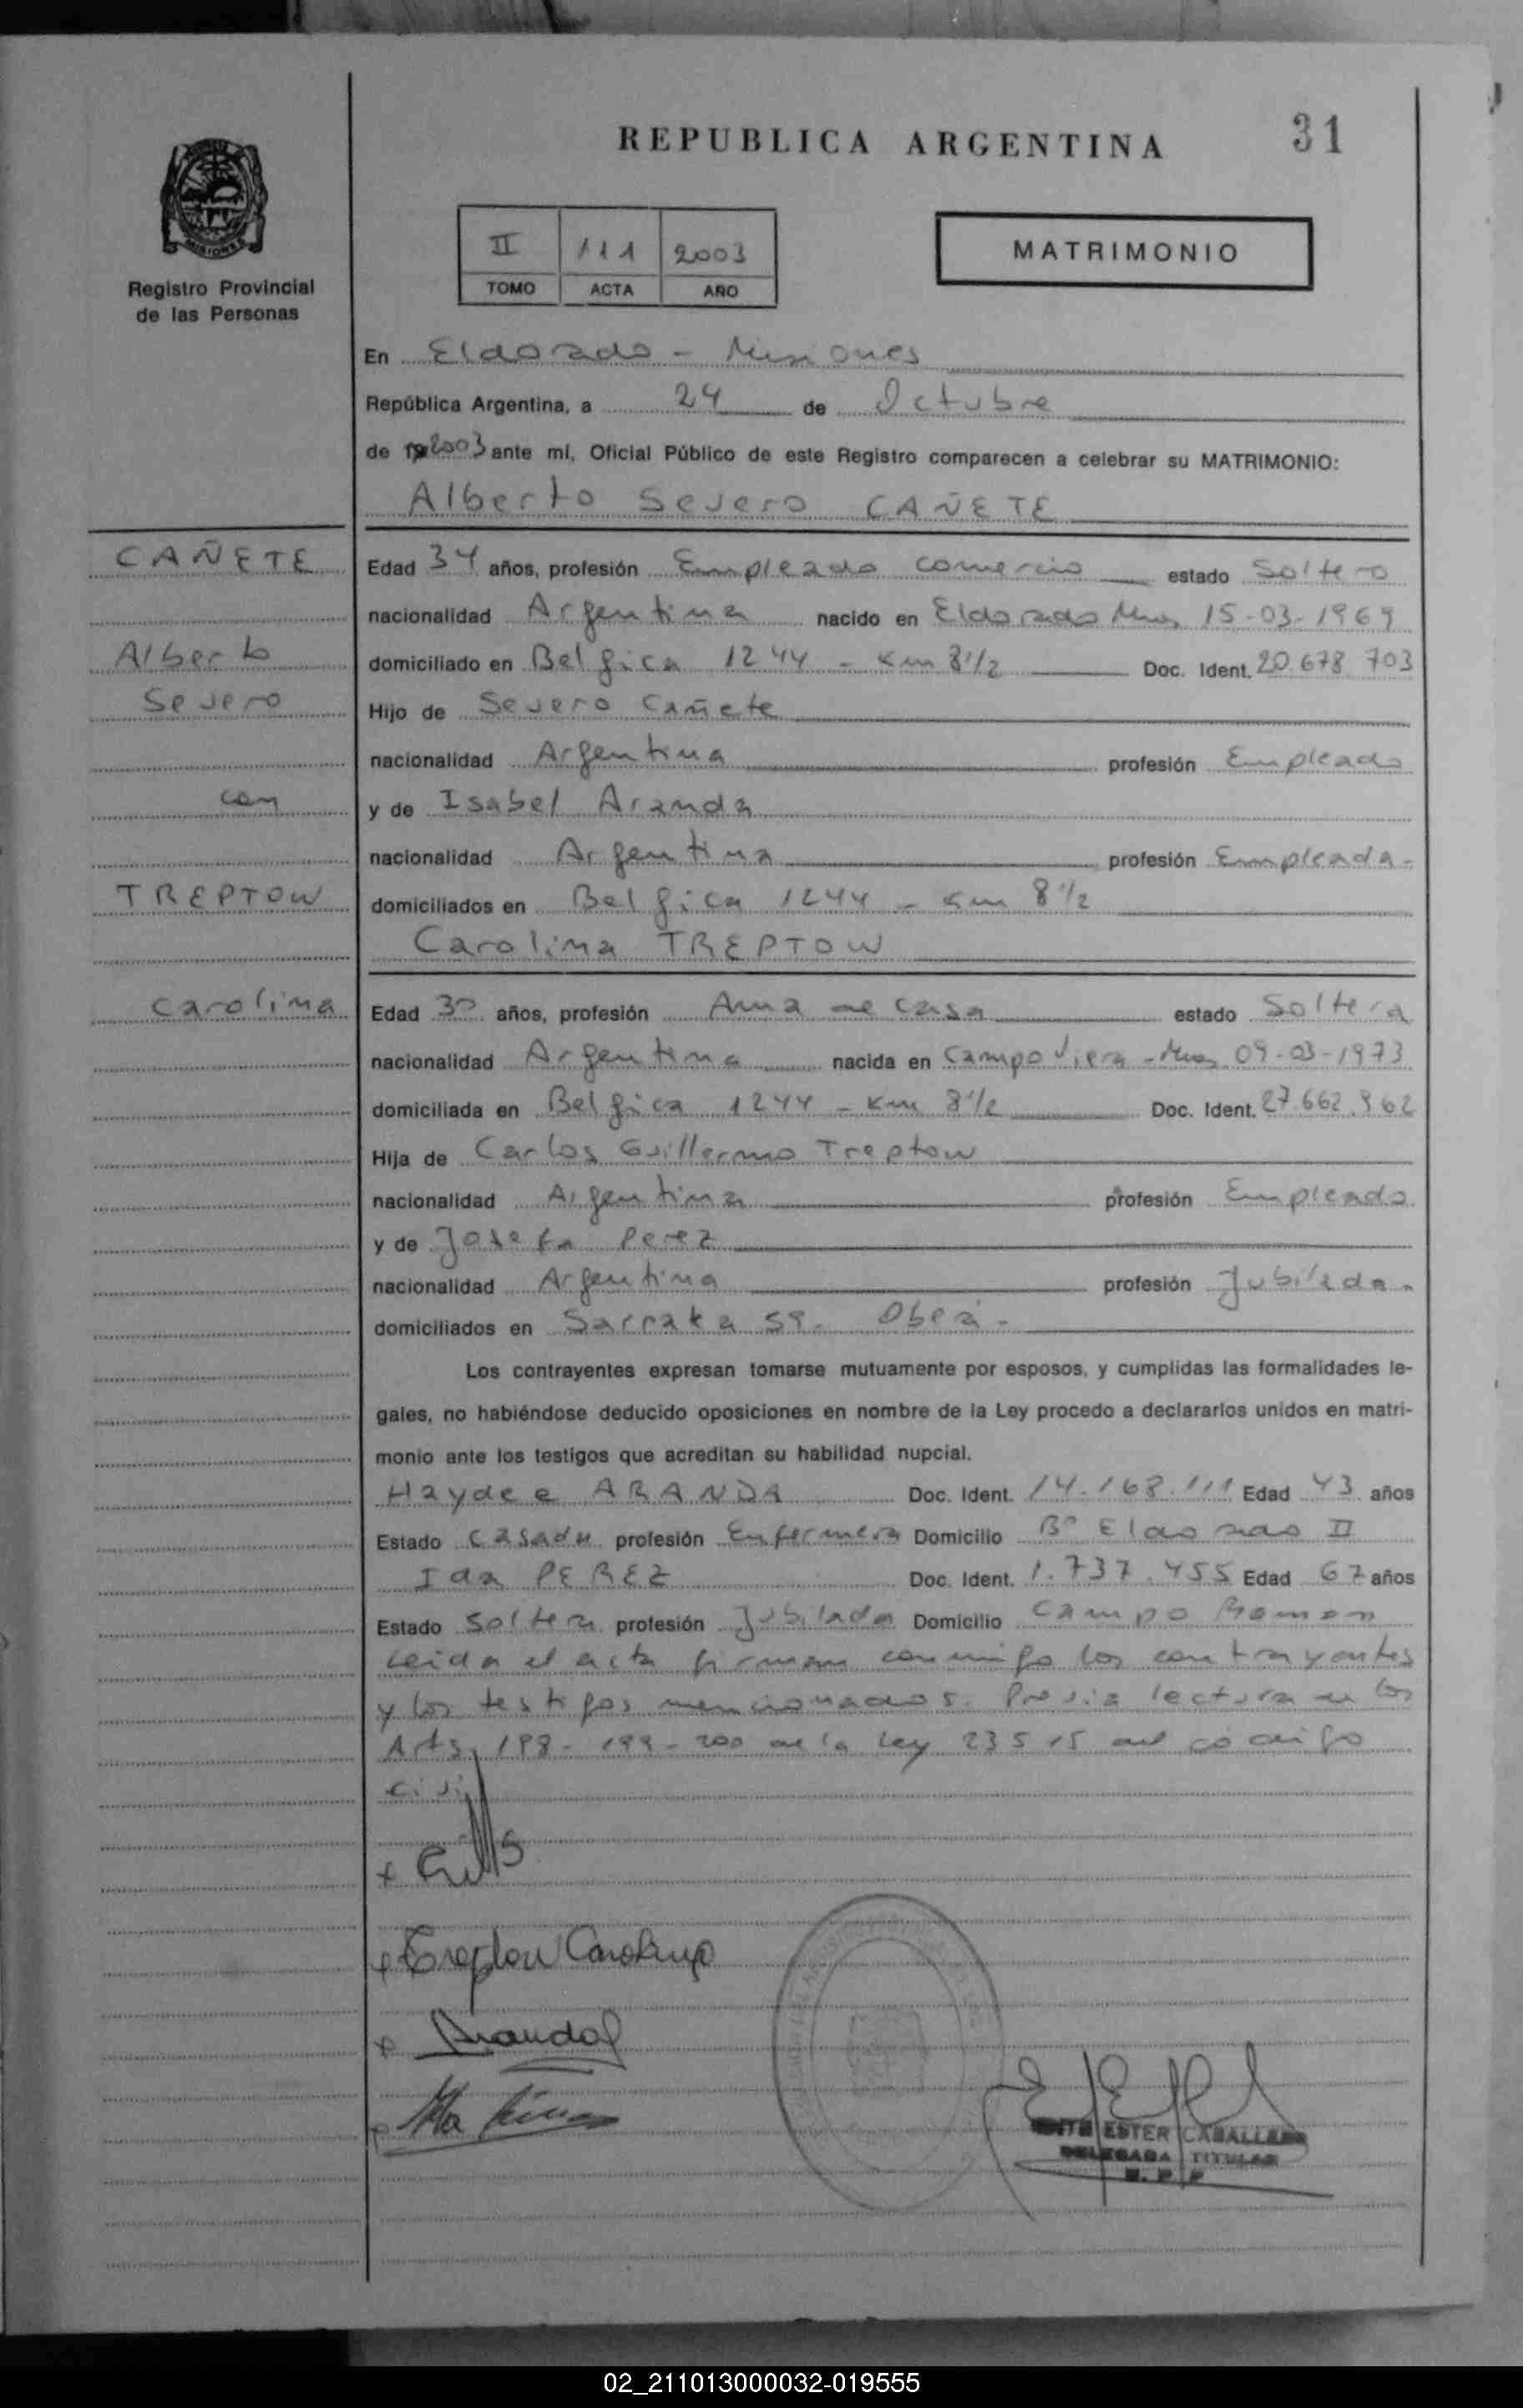 REPUBLICA ARGENTINA
31
MISIONES
Registro Provincial
de las Personas
II 111 2003
TOMO ACTA AÑO
MATRIMONIO
En Eldorado - Misiones
República Argentina, a 24 de Octubre
de 2003 ante mí, Oficial Público de este Registro comparecen a celebrar su MATRIMONIO:
Alberto Severo CAÑETE
CAÑETE
Alberto
Severo
con
TREPTOW
Carolina
Edad 34 años, profesión Empleado comercio estado Soltero
nacionalidad Argentina nacido en Eldorado Mnes 15-03-1969
domiciliado en Belgica 1244 - Km 8 1/2 Doc. Ident. 20.678.703
Hijo de Severo Cañete
nacionalidad Argentina profesión Empleado
y de Isabel Aranda
nacionalidad Argentina profesión Empleada-
domiciliados en Belgica 1244 - Km 8 1/2
Carolina TREPTOW
Edad 30 años, profesión Ama de casa estado Soltera
nacionalidad Argentina nacida en Campo Viera - Mnes 09-03-1973
domiciliada en Belgica 1244 - Km 8 1/2 Doc. Ident. 27.662.962
Hija de Carlos Guillermo Treptow
nacionalidad Argentina profesión Empleado
y de Josefa Perez
nacionalidad Argentina profesión Jubilada-
domiciliados en 59. Oberá-
Los contrayentes expresan tomarse mutuamente por esposos, y cumplidas las formalidades le-
gales, no habiéndose deducido oposiciones en nombre de la Ley procedo a declararlos unidos en matri-
monio ante los testigos que acreditan su habilidad nupcial.
Haydee ARANDA Doc. Ident. 14.168.111 Edad 43 años
Estado Casada profesión Enfermera Domicilio Bº Eldorado II
Ida PEREZ Doc. Ident. 1.737.455 Edad 67 años
Estado Soltera profesión Jubilada Domicilio Campo Ramon
Leida el acta firman conmigo los contrayentes
y los testigos mencionados. Previa lectura de los
Arts. 198-199-200 de la Ley 23515 del código
civil
Treptow Carolina
Aranda
ESTER CABALLERO
DELEGADA TITULAR
02_211013000032-019555